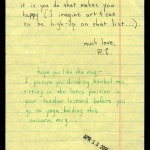 it is you do that makes you
happy (I imagine art & cats
to be high-up on that list...).
much love,
R.E.
hope you like the mug—
I picture you drinking herbal tea
sitting in the lotus position in
your leather leotard before you
go to yoga, holding this
unicorn mug...
APR 13